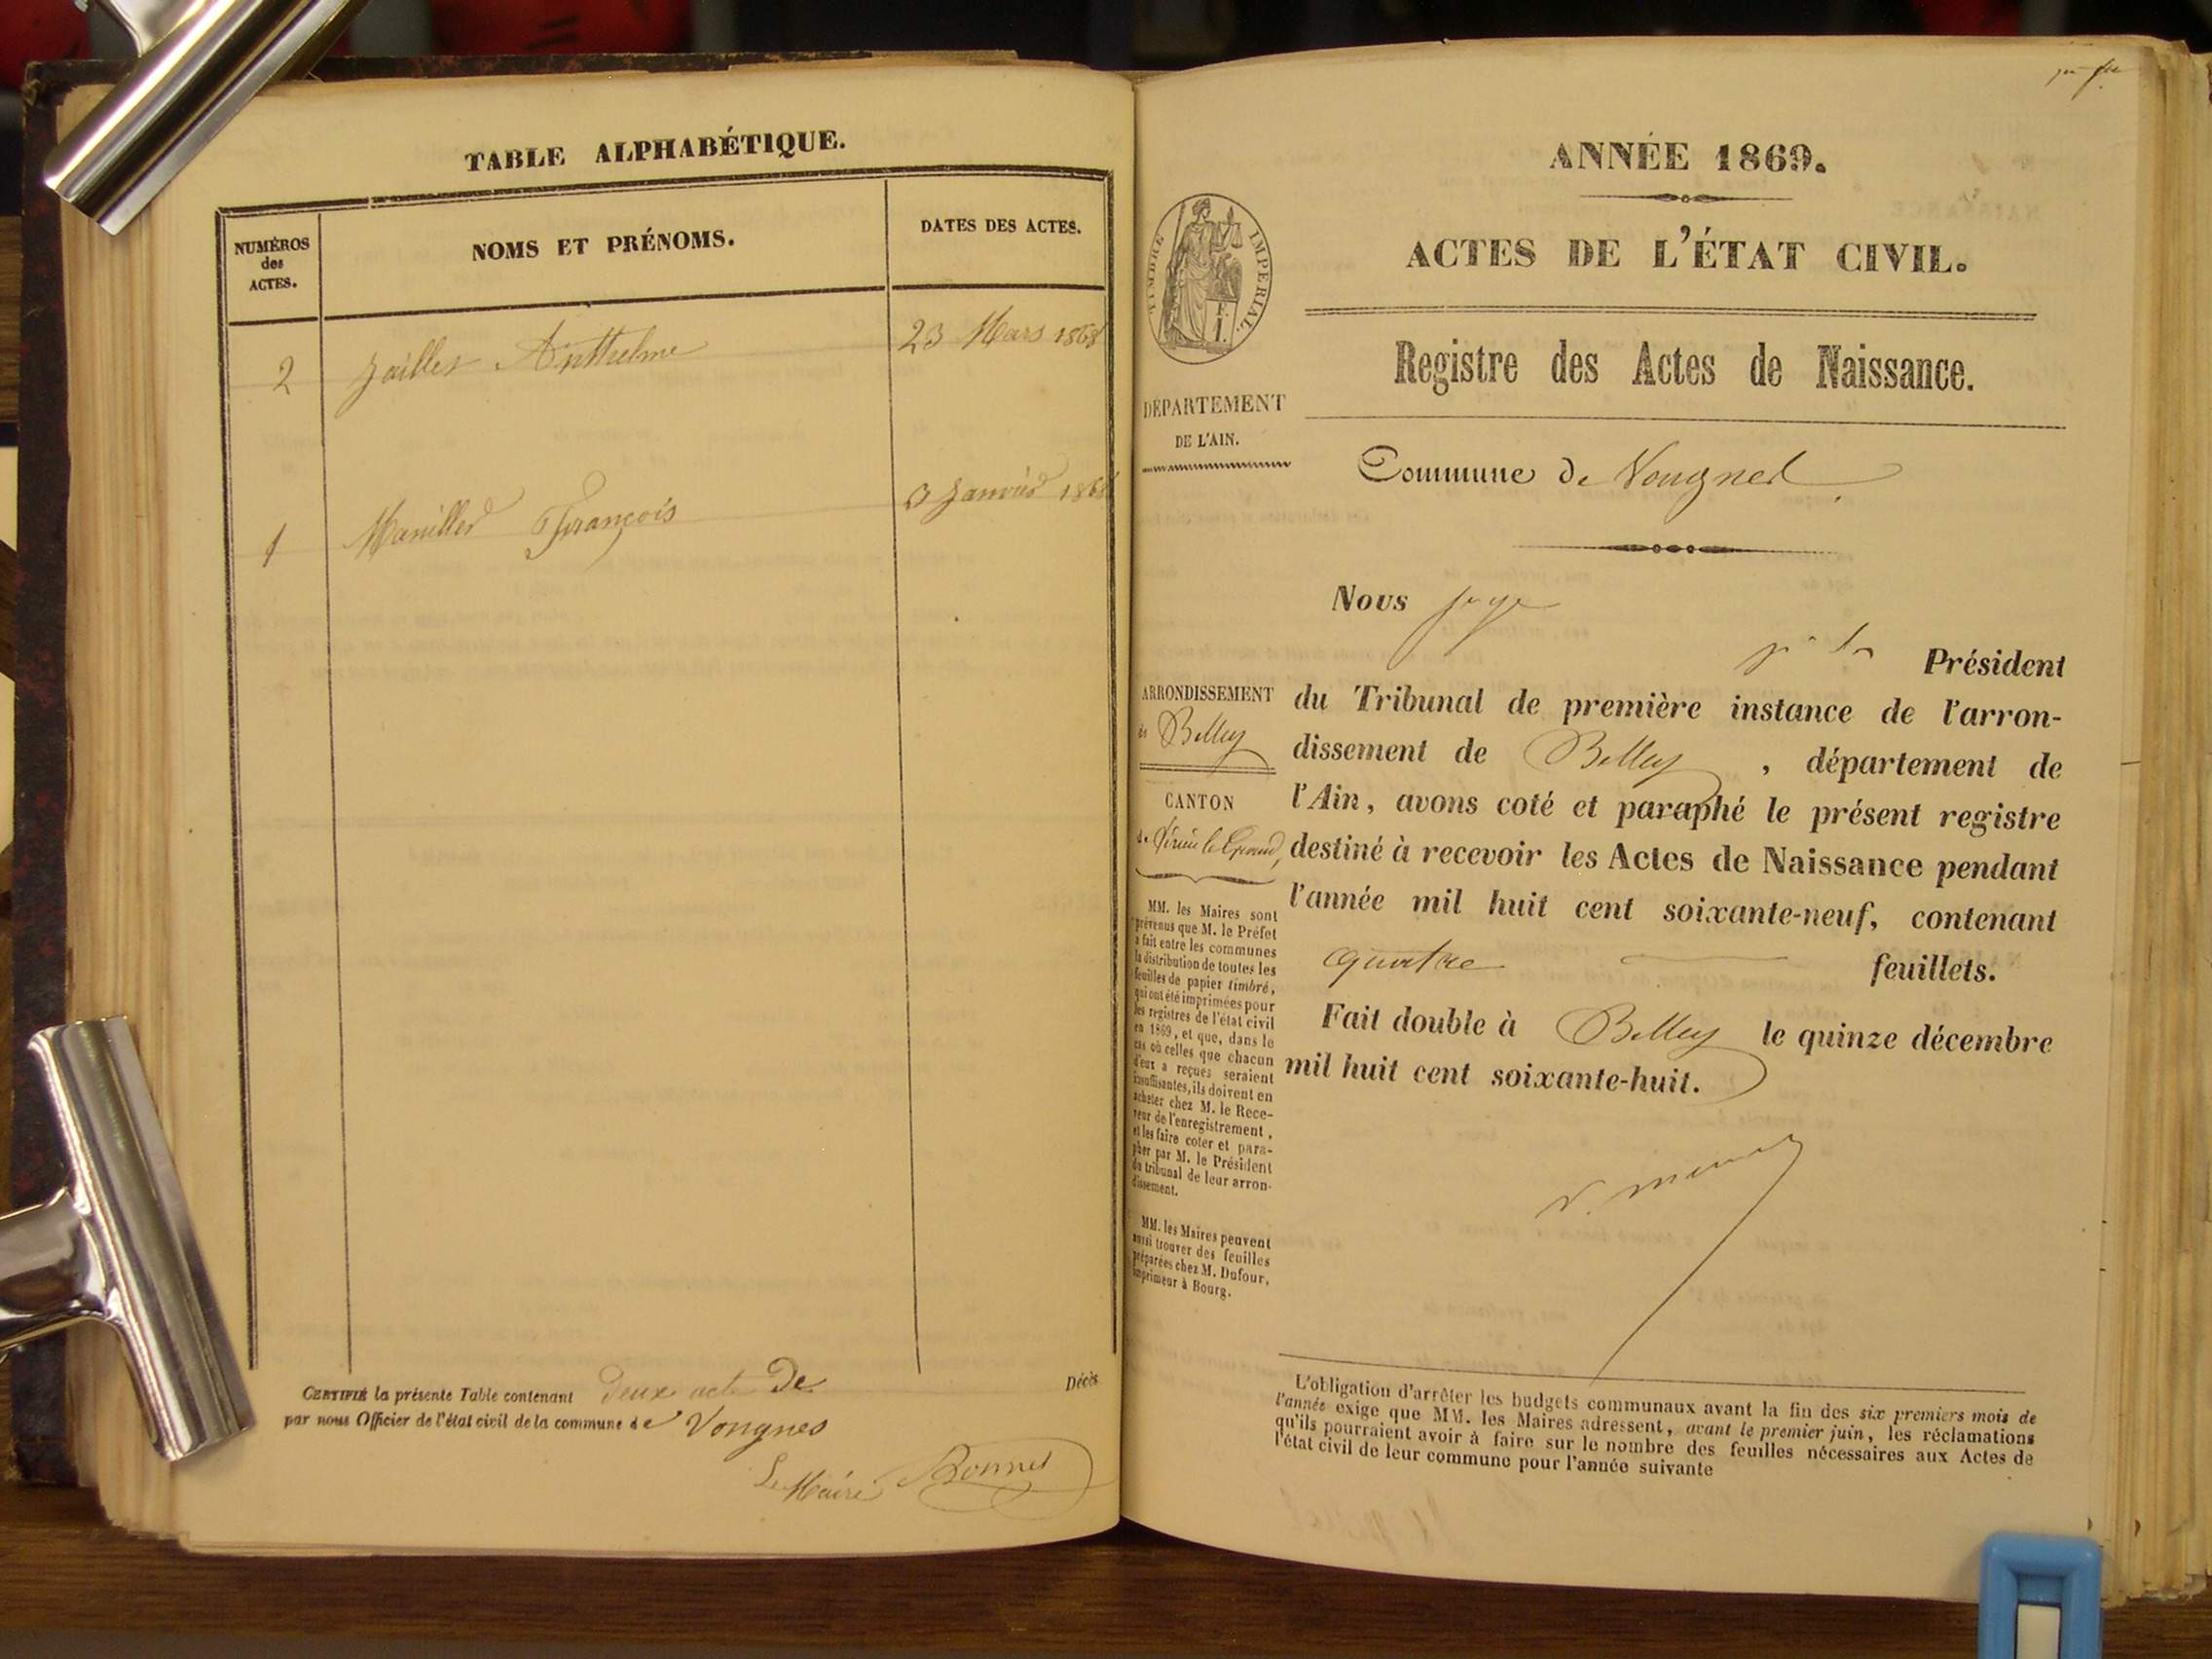 TABLE ALPHABÉTIQUE.
NUMÉROS
des
ACTES.
NOMS ET PRÉNOMS.
DATES DES ACTES.
2 Jailler Anthelme 23 Mars 1868
1 Manillier François 3 Janvier 1868
CERTIFIÉ la présente Table contenant deux acte De Décès
par nous Officier de l'état civil de la commune de Vongnes
Le Maire Bonnet
ANNÉE 1869.
ACTES DE L'ÉTAT CIVIL.
Registre des Actes de Naissance.
TIMBRE IMPÉRIAL.
DÉPARTEMENT
DE L'AIN.
Commune de Vongnes
ARRONDISSEMENT
de Belley
CANTON
de Virieu le Grand,
MM. les Maires sont
prévenus que M. le Préfet
a fait entre les communes
la distribution de toutes les
feuilles de papier timbré,
qui ont été imprimées pour
les registres de l'état civil
en 1869, et que, dans le
cas où celles que chacun
d'eux a reçues seraient
insuffisantes, ils doivent en
acheter chez M. le Rece-
veur de l'enregistrement,
et les faire coter et para-
pher par M. le Président
du tribunal de leur arron-
dissement.
MM. les Maires peuvent
aussi trouver des feuilles
préparées chez M. Dufour,
imprimeur à Bourg.
Nous juge
Président
du Tribunal de première instance de l'arron-
dissement de Belley, département de
l'Ain, avons coté et paraphé le présent registre
destiné à recevoir les Actes de Naissance pendant
l'année mil huit cent soixante-neuf, contenant
quatre feuillets.
Fait double à Belley le quinze décembre
mil huit cent soixante-huit.
L'obligation d'arrêter les budgets communaux avant la fin des six premiers mois de
l'année exige que MM. les Maires adressent, avant le premier juin, les réclamations
qu'ils pourraient avoir à faire sur le nombre des feuilles nécessaires aux Actes de
l'état civil de leur commune pour l'année suivante